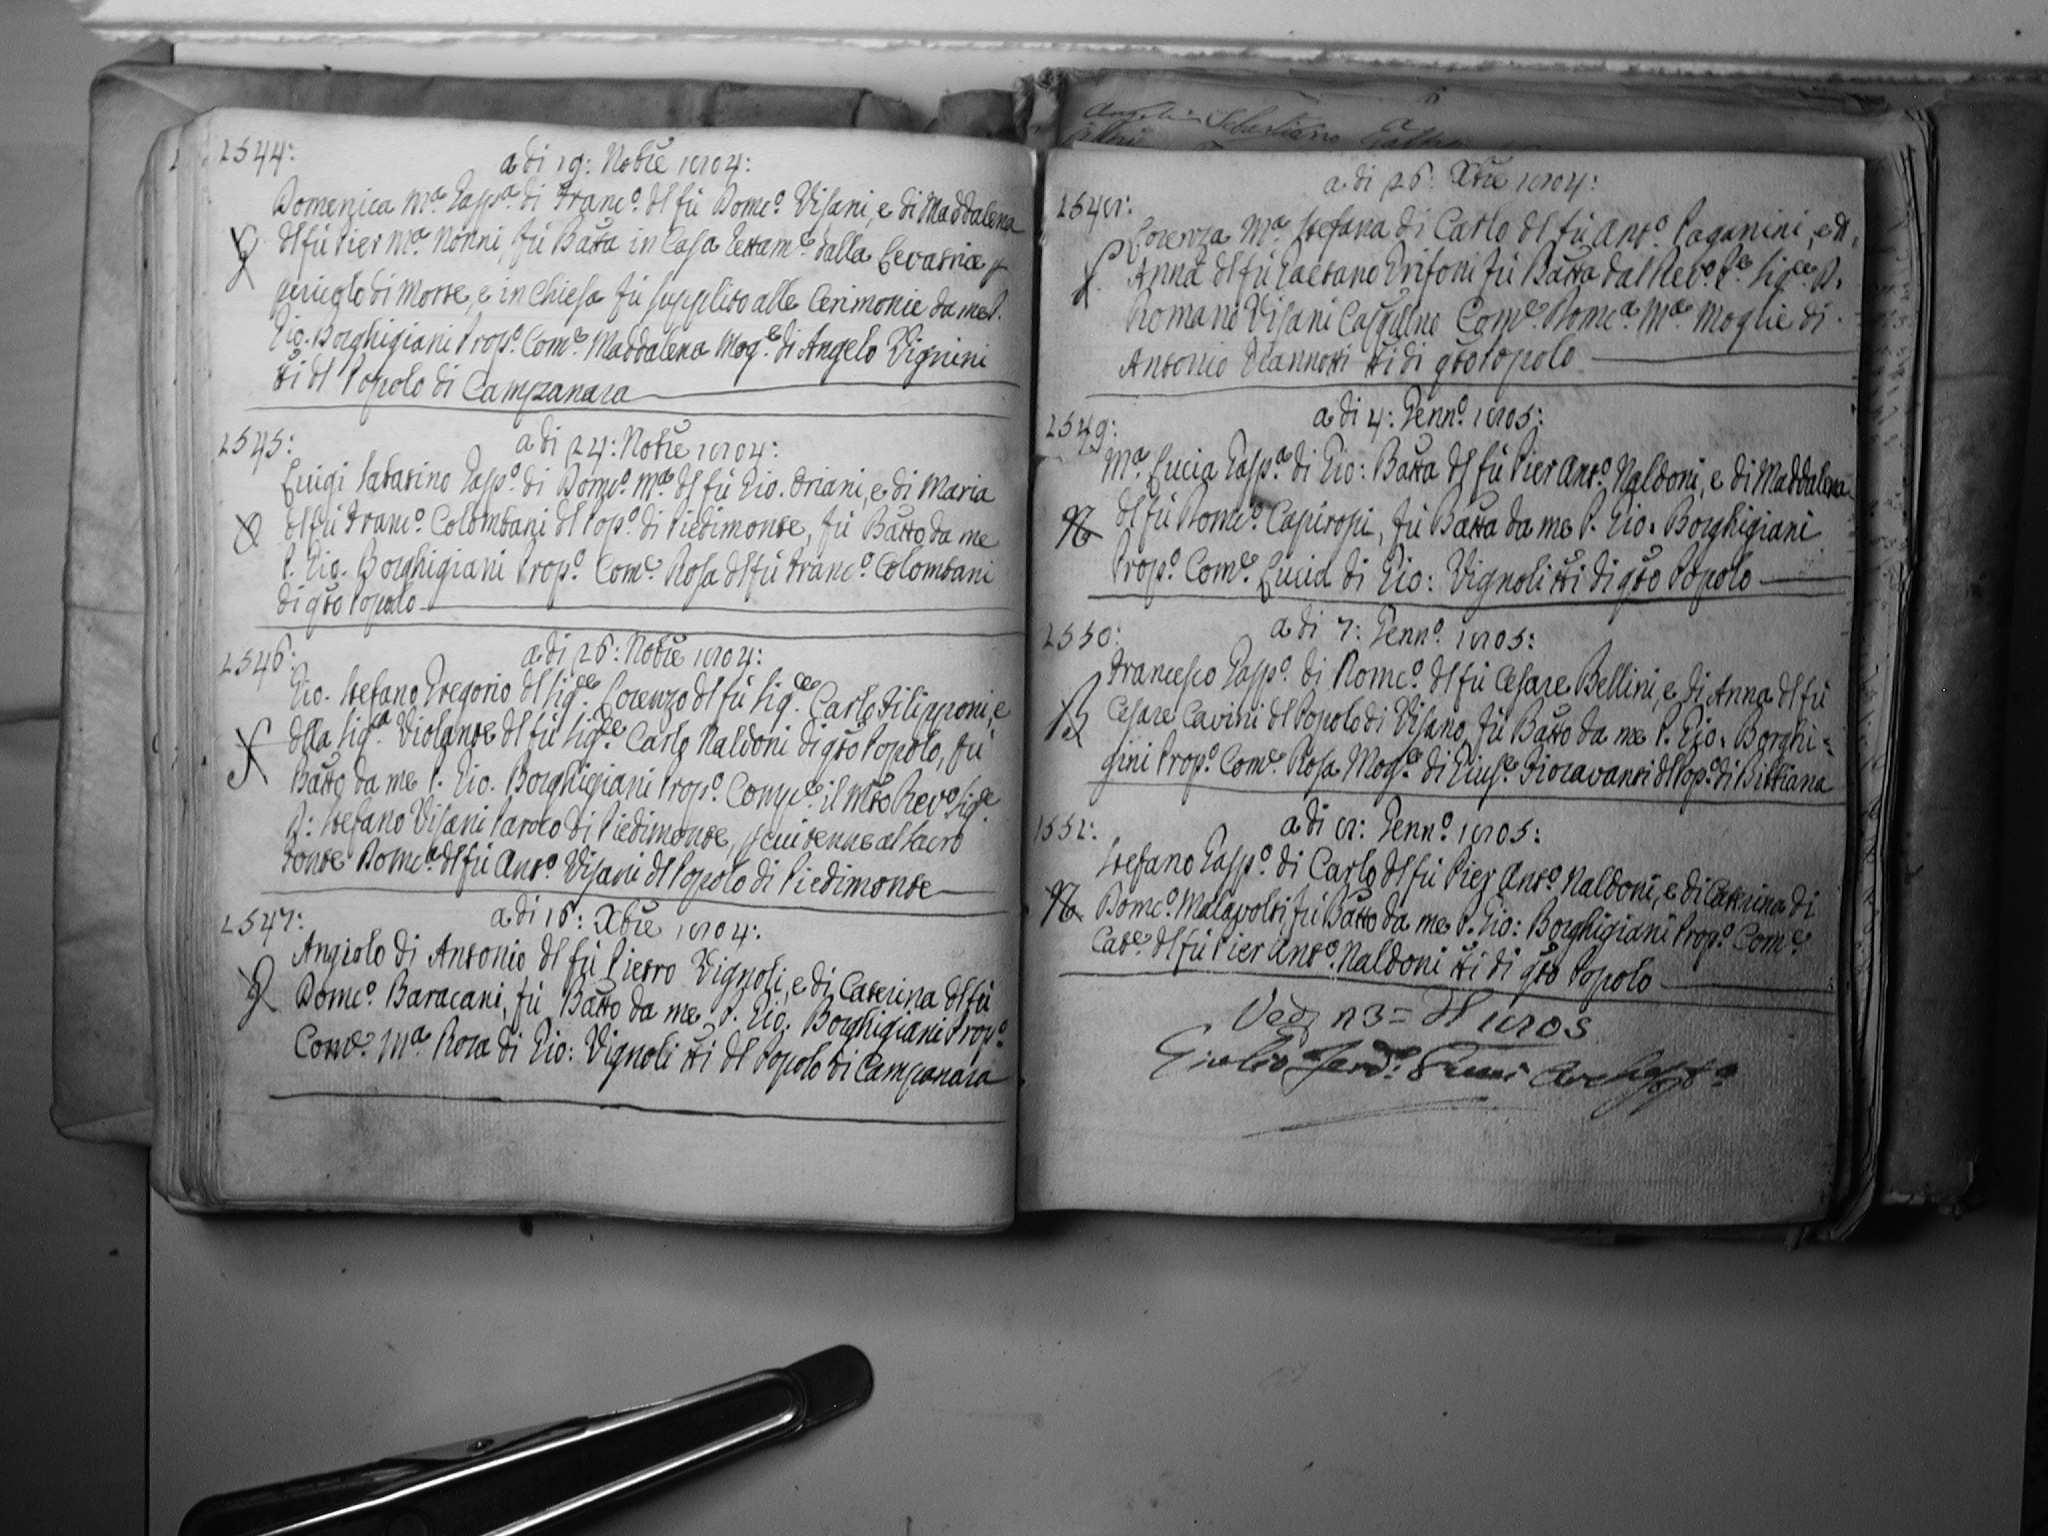 2544:
a di 19: Nobre 1804:
Domenica Ma Gaspa di Franco dl fù Domco Visani, e di Maddalena
dl fù Pier Ma Nonni, fù Batta in Casa dalla Levatrice p
pericolo di Morte, e in Chiesa fù supplito alle Cerimonie da me P.
Gio. Borghigiani Propo Come Maddalena Moge di Angelo Vignini
tti dl Popolo di Campanara
2545:
a di 24: Nobre 1804:
Luigi Saba­tino Gaspo di Domco Ma dl fù Gio. Oriani, e di Maria
dl fù Franco Colombani dl Popo di Piedimonte, fù Batto da me
P. Gio. Borghigiani Propo Come Rosa dl fù Franco Colombani
di qto Popolo
2546:
a di 26: Nobre 1804:
Gio. Stefano Gregorio dl Sige Lorenzo dl fù Sige Carlo Filipponi, e
dlla Siga Violante dl fù Sige Carlo Naldoni di qto Popolo, fù
Batto da me P. Gio. Borghigiani Propo Compe il Mto Revo Sige
D: Stefano Visani Paroco di Piedimonte, p cui tenne al Sacro
Fonte Domca dl fù Anto Visani dl Popolo di Piedimonte
2547:
a di 16: Xbre 1804:
Angiolo di Antonio dl fù Pietro Vignoli, e di Caterina dl fù
Domco Baracani, fù Batto da me P. Gio. Borghigiani Propo
Come Ma Rosa di Gio: Vignoli tti dl Popolo di Campanara
Angeli Sebastiano
a di 26: Xbre 1804:
2548:
Lorenza Ma Stefana di Carlo dl fù Anto Paganini, e di
Anna dl fù Gaetano Grifoni fù Batta dal Revo Sige D.
Romano Visani Come Domca Ma Moglie di
Antonio Giannotti tti di qto Popolo
2549:
a di 4: Genno 1805:
Ma Lucia Gaspa di Gio: Batta dl fù Pier Anto Naldoni, e di Maddalena
dl fù Domco Capiropi, fù Batta da me P. Gio. Borghigiani
Propo Come Lucia di Gio: Vignoli tti di qto Popolo
2550:
a di 7: Genno 1805:
Francesco Gaspo di Domco dl fù Cesare Bellini, e di Anna dl fù
Cesare Cavini dl Popolo di Visano, fù Batto da me P. Gio. Borghi=
gini Propo Come Rosa Moge di Giuse Fioravanti dl Popo di Bibbiana
2551:
a di 8: Genno 1805:
Stefano Gaspo di Carlo dl fù Pier Anto Naldoni, e di Caterina di
Domco Malavolti, fù Batto da me P. Gio: Borghigiani Propo Come
Cate dl fù Pier Anto Naldoni tti di qto Popolo
Ved. n 3 = dl 1805
Giulio Ferdo